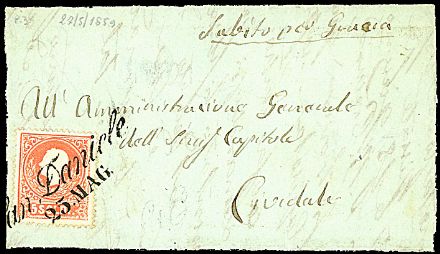 23/5/1859
Subito per
All' Amministrazione Generale
dell' Capitolo
Cividale
San Daniele
23. MAG.